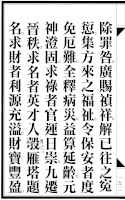 除罪咎廣賜禎祥解已往之寃
愆集方來之福祉令保安者度
免厄難全釋病災益算延齡元
神澄固求祿者官運日崇九遷
晉秩求名者英才人彀雁塔題
名求財者利源充溢財寶豐盈